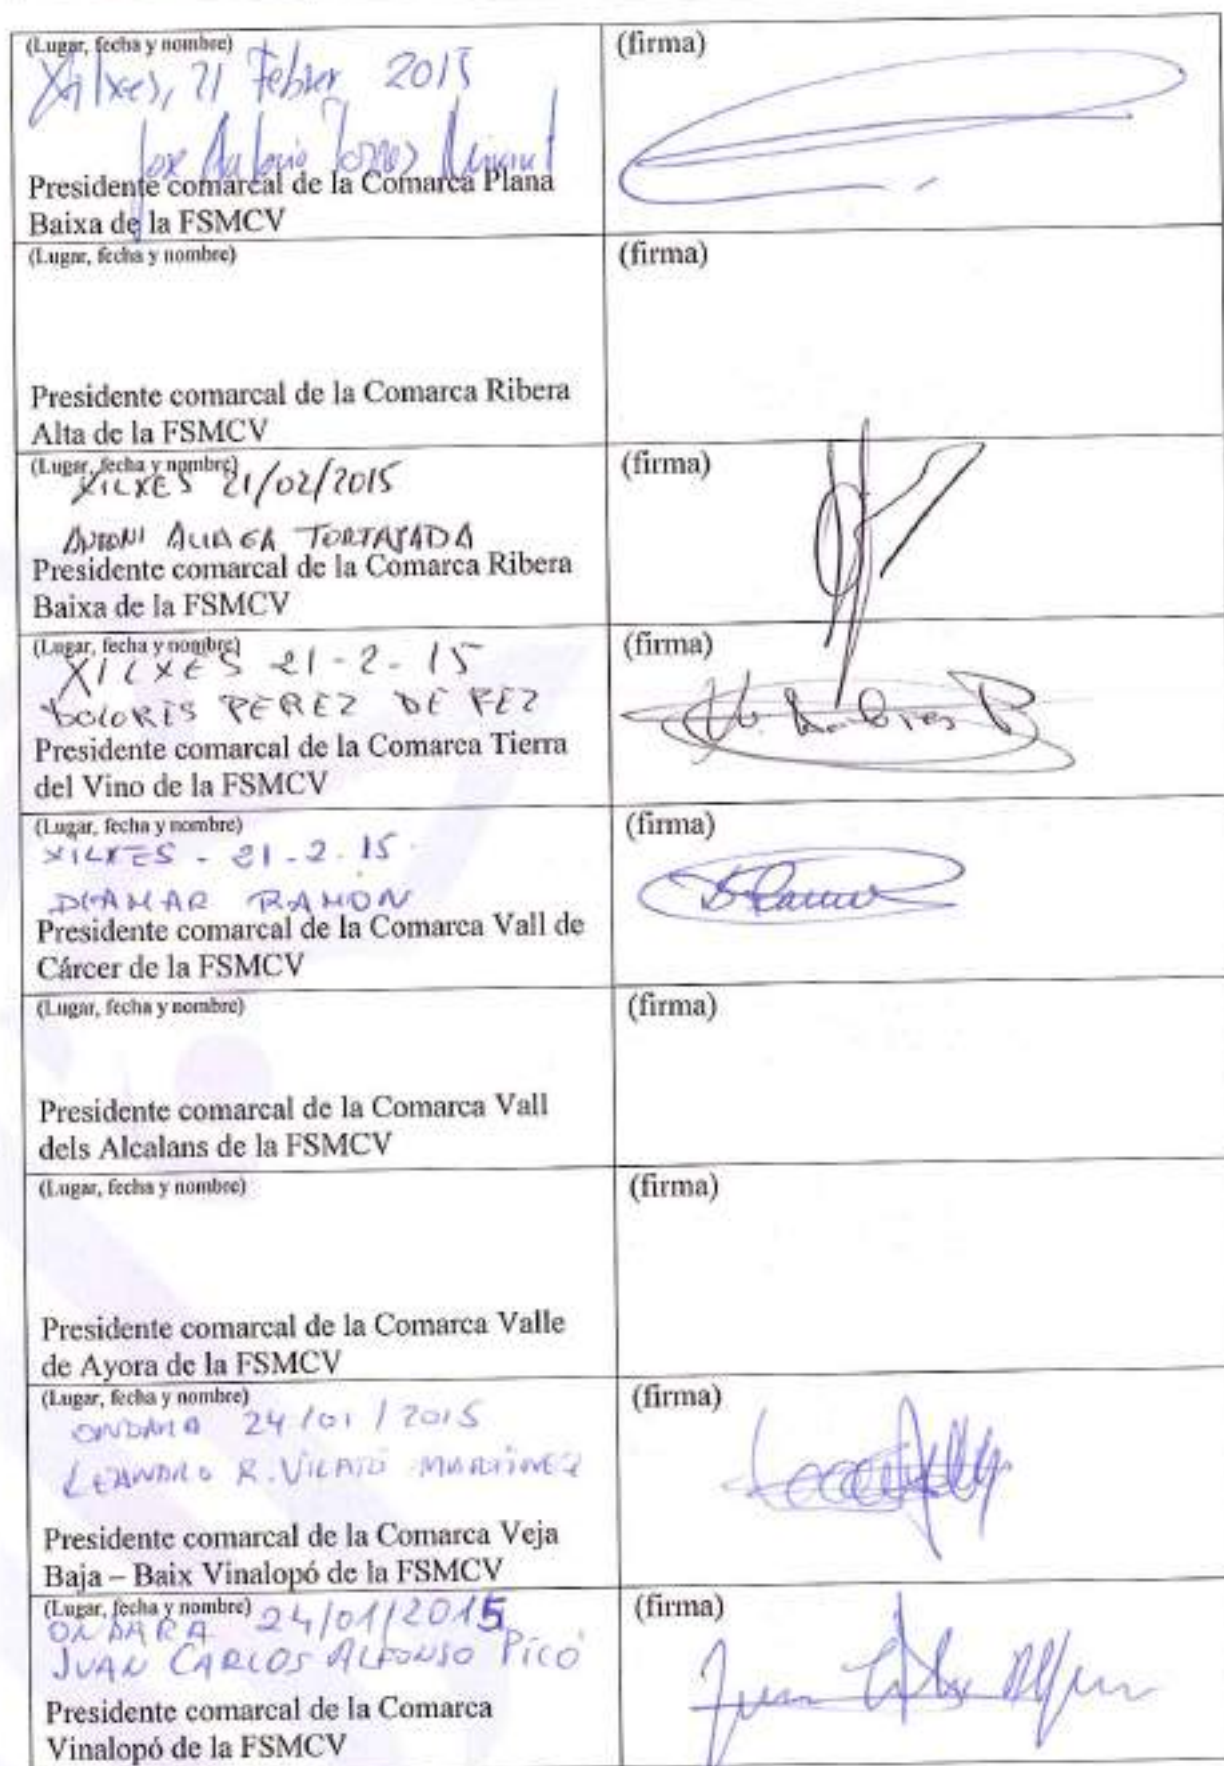 (Lugar, fecha y nombre)
(firma)
Xilxes, 21 Febrer 2015
Jose Antonio
Presidente comarcal de la Comarca Plana
Baixa de la FSMCV
(Lugar, fecha y nombre)
(firma)
Presidente comarcal de la Comarca Ribera
Alta de la FSMCV
(Lugar, fecha y nombre)
(firma)
XILXES 21/02/2015
ANTONI ALIAGA TORTAJADA
Presidente comarcal de la Comarca Ribera
Baixa de la FSMCV
(Lugar, fecha y nombre)
(firma)
XILXES 21-2-15
DOLORES PEREZ DE FEZ
Presidente comarcal de la Comarca Tierra
del Vino de la FSMCV
(Lugar, fecha y nombre)
(firma)
XILXES - 21-2-15.
RAMON
Presidente comarcal de la Comarca Vall de
Cárcer de la FSMCV
(Lugar, fecha y nombre)
(firma)
Presidente comarcal de la Comarca Vall
dels Alcalans de la FSMCV
(Lugar, fecha y nombre)
(firma)
Presidente comarcal de la Comarca Valle
de Ayora de la FSMCV
(Lugar, fecha y nombre)
(firma)
ONDARA 24/01/2015
LEANDRO R. MARTINEZ
Presidente comarcal de la Comarca Veja
Baja – Baix Vinalopó de la FSMCV
(Lugar, fecha y nombre)
(firma)
ONDARA 24/01/2015
JUAN CARLOS ALFONSO PICÓ
Presidente comarcal de la Comarca
Vinalopó de la FSMCV